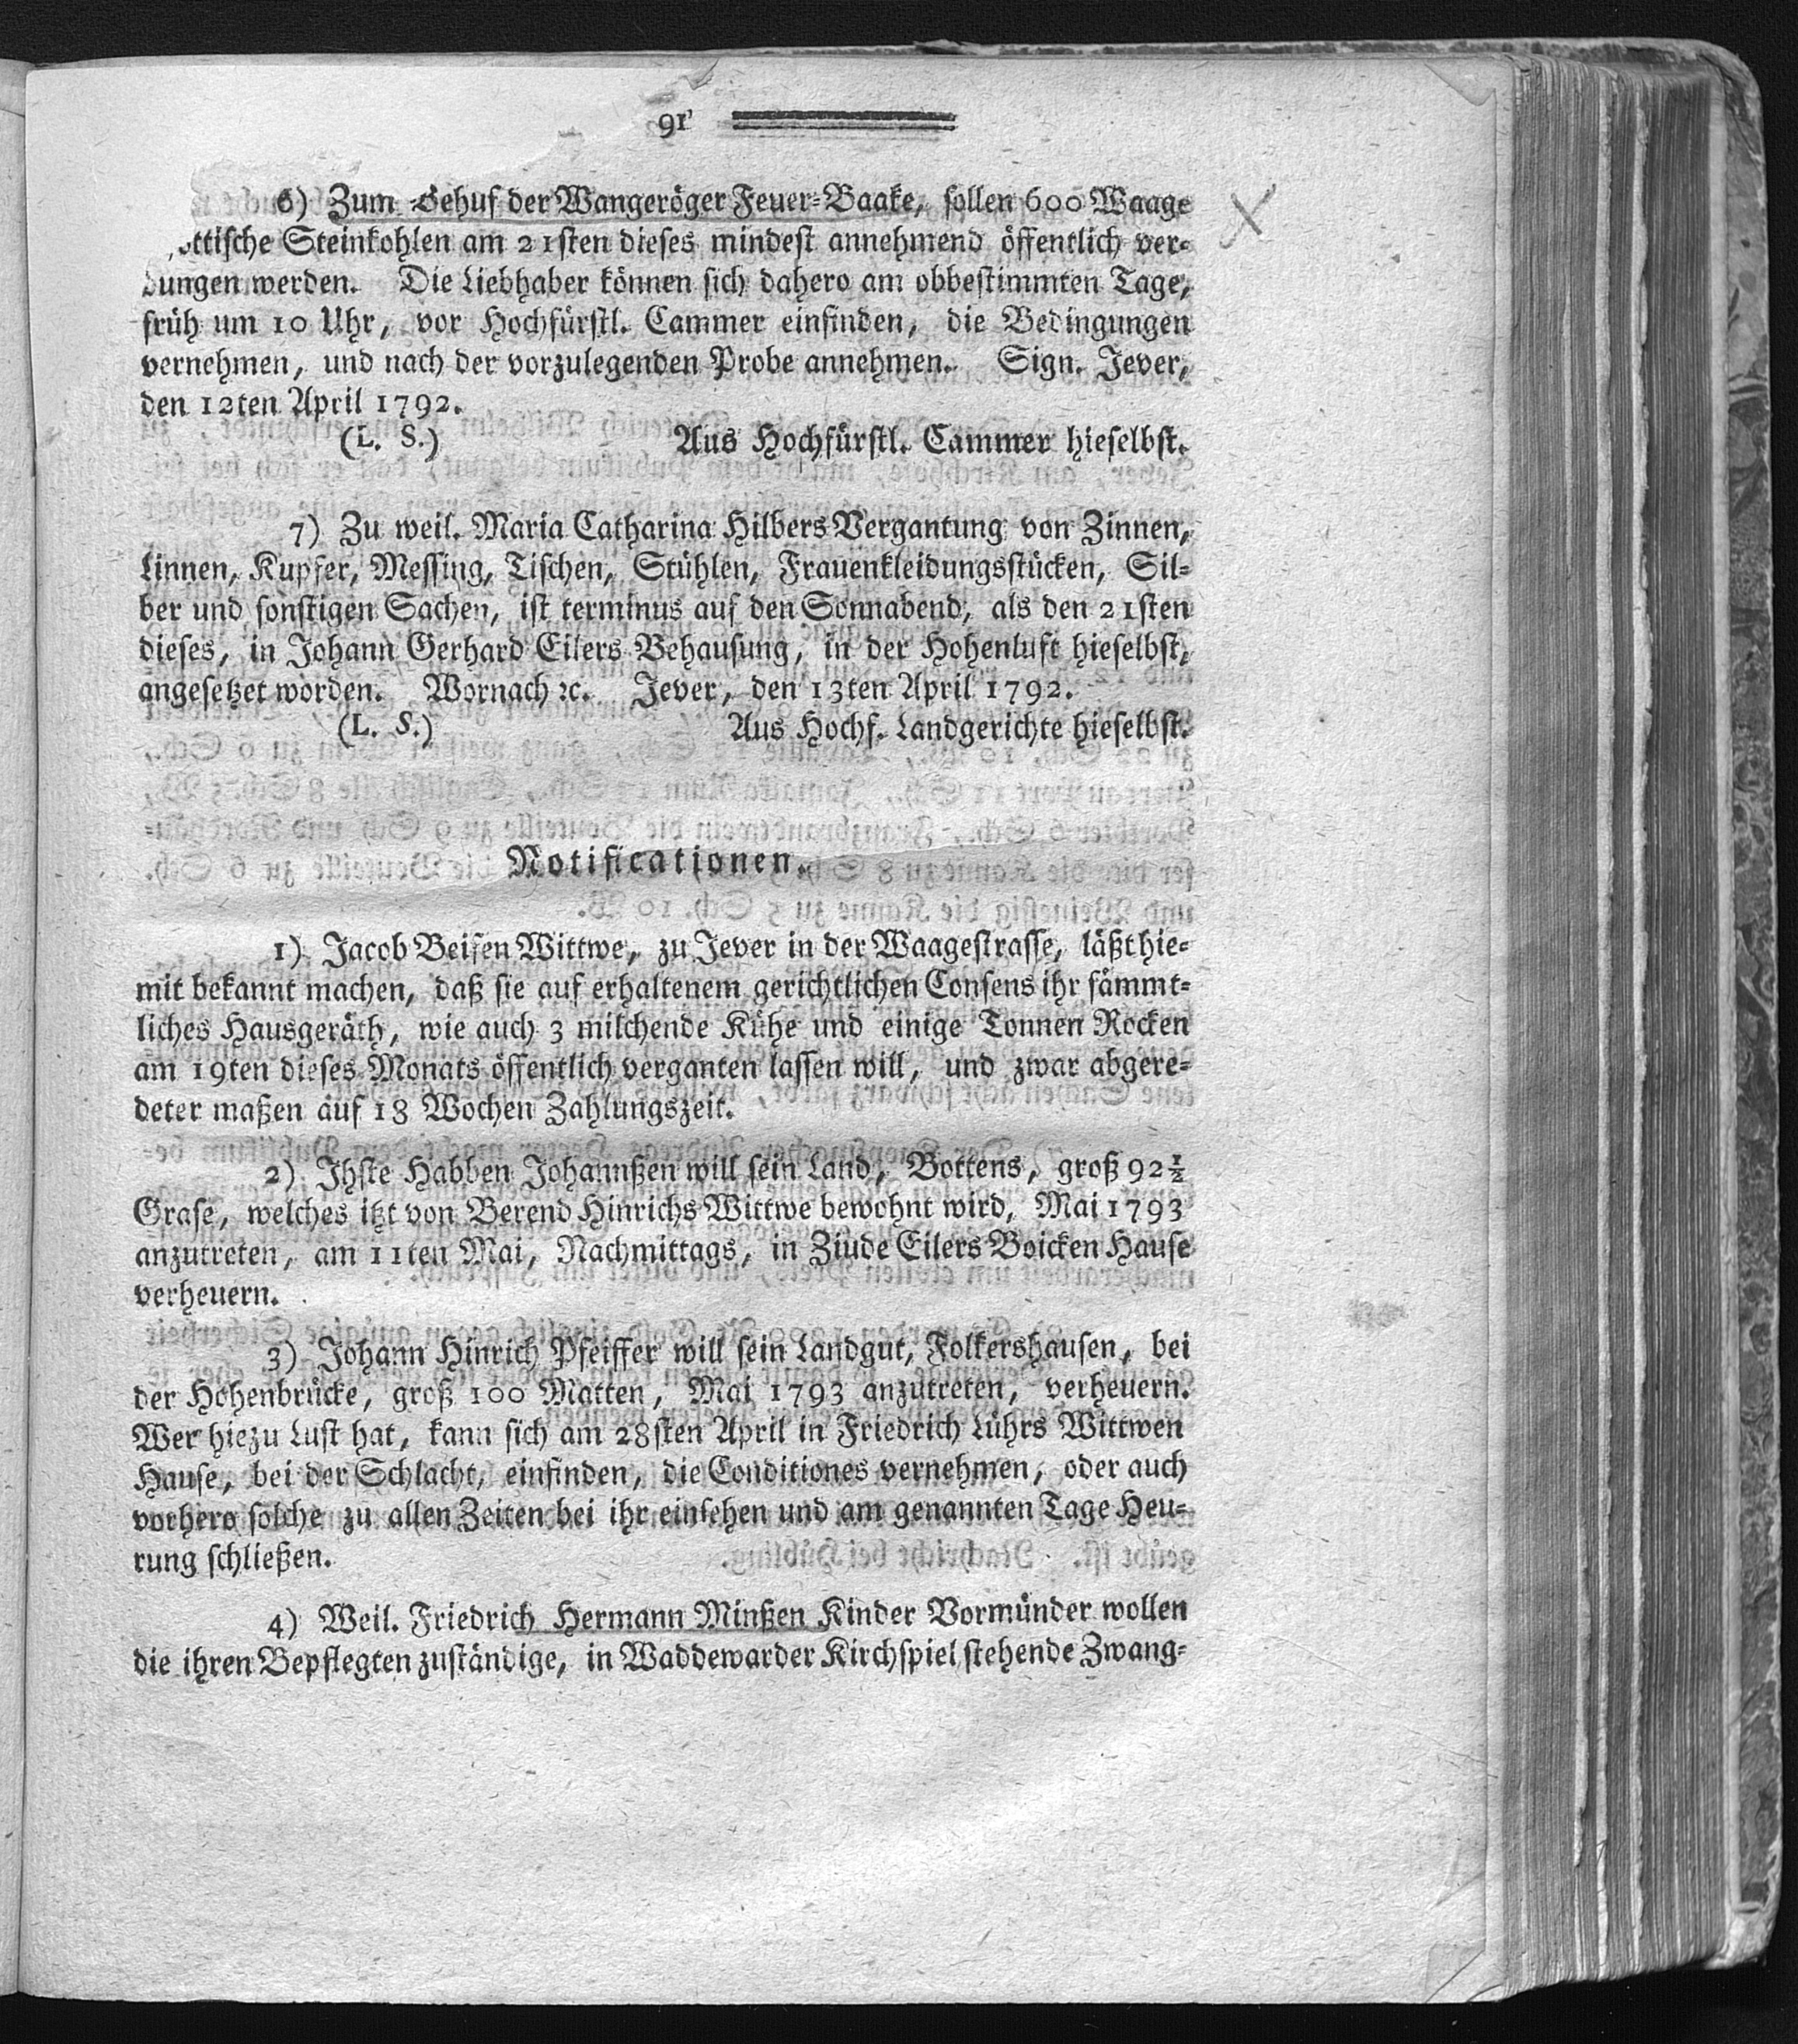 91
6) Zum Behuf der Wangeröger Feuer-Baake, sollen 600 Waage
ottische Steinkohlen am 21sten dieses mindest annehmend öffentlich ver-
dungen werden. Die Liebhaber können sich dahero am obbestimmten Tage,
früh um 10 Uhr, vor Hochfürstl. Cammer einfinden, die Bedingungen
vernehmen, und nach der vorzulegenden Probe annehmen. Sign. Jever,
den 12ten April 1792.
(L. S.) Aus Hochfürstl. Cammer hieselbst.
7) Zu weil. Maria Catharina Hilbers Vergantung von Zinnen,
Linnen, Kupfer, Messing, Tischen, Stühlen, Frauenkleidungsstücken, Sil-
ber und sonstigen Sachen, ist terminus auf den Sonnabend, als den 21sten
dieses, in Johann Gerhard Eilers Behausung, in der Hohenluft hieselbst,
angesetzet worden. Wornach ꝛc. Jever, den 13ten April 1792.
(L. S.) Aus Hochf. Landgerichte hieselbst.
Notificationen.
1) Jacob Beisen Wittwe, zu Jever in der Waagestrasse, läßt hie-
mit bekannt machen, daß sie auf erhaltenem gerichtlichen Consens ihr sämmt-
liches Hausgeräth, wie auch 3 milchende Kühe und einige Tonnen Rocken
am 19ten dieses Monats öffentlich verganten lassen will, und zwar abgere-
deter maßen auf 18 Wochen Zahlungszeit.
2) Ihste Habben Johannßen will sein Land, Bottens, groß 92 ½
Grase, welches itzt von Berend Hinrichs Wittwe bewohnt wird, Mai 1793
anzutreten, am 11ten Mai, Nachmittags, in Ziude Eilers Boicken Hause
verheuern.
3) Johann Hinrich Pfeiffer will sein Landgut, Folkershausen, bei
der Hohenbrücke, groß 100 Matten, Mai 1793 anzutreten, verheuern.
Wer hiezu Lust hat, kann sich am 28sten April in Friedrich Lührs Wittwen
Hause, bei der Schlacht, einfinden, die Conditiones vernehmen, oder auch
vorhero solche zu allen Zeiten bei ihr einsehen und am genannten Tage Heu-
rung schließen.
4) Weil. Friedrich Hermann Minßen Kinder Vormünder wollen
die ihren Bepflegten zuständige, in Waddewarder Kirchspiel stehende Zwang-